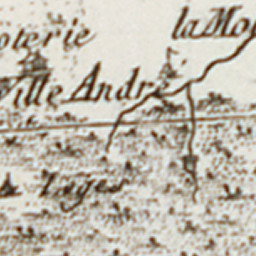 oterie la Mo
Ville André
Loges